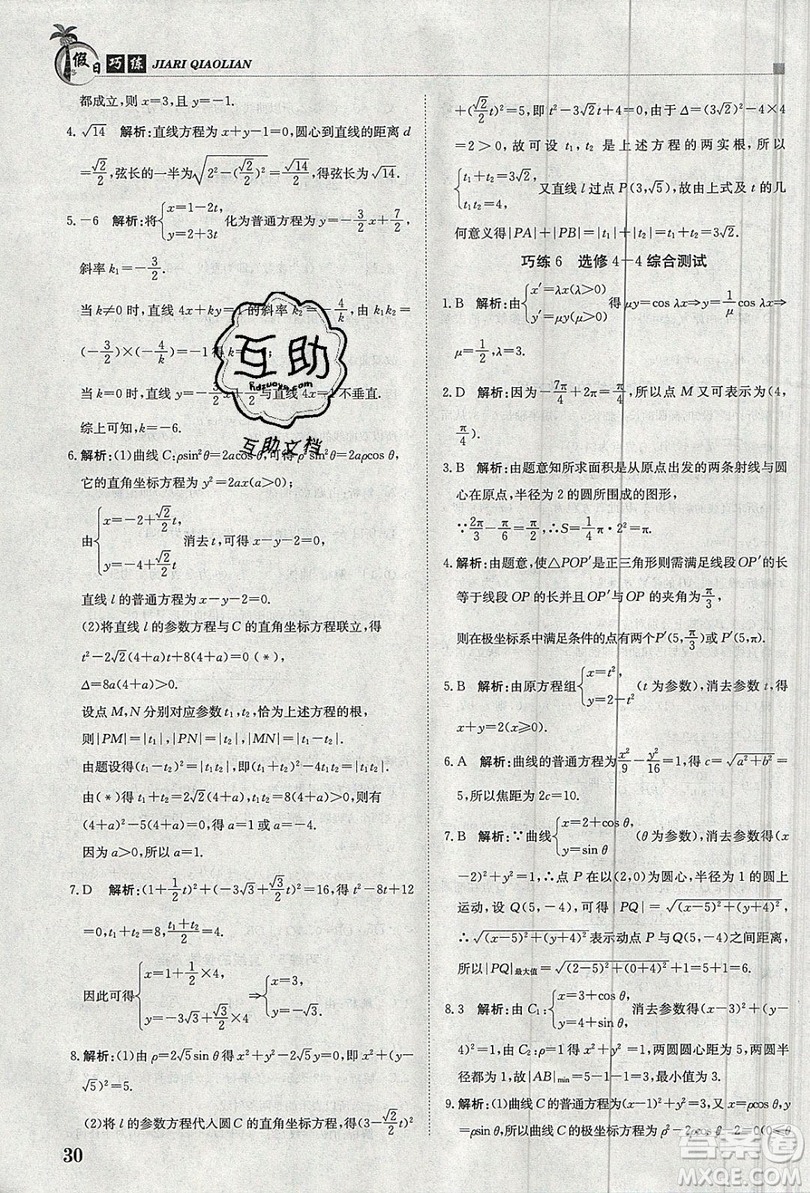 假日巧练 JIARI QIAOLIAN
都成立，则x=3，且y=-1.
4. √14 解析：直线方程为x+y-1=0，圆心到直线的距离d
=√2/2，弦长的一半为√(2²-(√2/2)²)=√14/2，得弦长为√14.
5. -6 解析：将{x=1-2t, y=2+3t 化为普通方程为y=-3/2x+7/2，
斜率k₁=-3/2，
当k≠0时，直线4x+ky=1的斜率k₂=-4/k，由k₁k₂=
(-3/2)×(-4/k)=-1得k=
当k=0时，直线y=-3/2x+7/2与直线4x=1不垂直.
综上可知，k=-6.
6. 解析：(1)曲线C：ρsin²θ=2acosθ，可得ρ²sin²θ=2aρcosθ，
它的直角坐标方程为y²=2ax(a>0)；
由{x=-2+√2/2t, y=-4+√2/2t, 消去t，可得x-y-2=0.
直线l的普通方程为x-y-2=0.
(2)将直线l的参数方程与C的直角坐标方程联立，得
t²-2√2(4+a)t+8(4+a)=0 (*)，
Δ=8a(4+a)>0.
设点M，N分别对应参数t₁，t₂，恰为上述方程的根，
则|PM|=|t₁|，|PN|=|t₂|，|MN|=|t₁-t₂|.
由题设得(t₁-t₂)²=|t₁t₂|，即(t₁+t₂)²-4t₁t₂=|t₁t₂|.
由(*)得t₁+t₂=2√2(4+a)，t₁t₂=8(4+a)>0，则有
(4+a)²-5(4+a)=0，得a=1或a=-4.
因为a>0，所以a=1.
7. D 解析：(1+1/2t)²+(-3√3+√3/2t)²=16，得t²-8t+12
=0，t₁+t₂=8，(t₁+t₂)/2=4，
因此可得{x=1+1/2×4, y=-3√3+√3/2×4 ⇒{x=3, y=-√3.
8. 解析：(1)由ρ=2√5sinθ得x²+y²-2√5y=0，即x²+(y
-√5)²=5.
(2)将l的参数方程代入圆C的直角坐标方程，得(3-√2/2t)²
+(√2/2t)²=5，即t²-3√2t+4=0，由于Δ=(3√2)²-4×4
=2>0，故可设t₁，t₂是上述方程的两实根，所以
{t₁+t₂=3√2, t₁t₂=4. 又直线l过点P(3,√5)，故由上式及t的几
何意义得|PA|+|PB|=|t₁|+|t₂|=t₁+t₂=3√2.
巧练6 选修4-4综合测试
1. B 解析：由{x′=λx(λ>0), y′=μy(μ>0) 得μy=cosλx⇒y=1/μcosλx⇒
μ=1/2，λ=3.
2. D 解析：因为-7π/4+2π=π/4，所以点M又可表示为(4,
π/4).
3. B 解析：由题意知所求面积是从原点出发的两条射线与圆
心在原点，半径为2的圆所围成的图形，
∵2π/3-π/6=π/2，∴S=1/4π·2²=π.
4. 解析：由题意，使△POP′是正三角形则需满足线段OP′的长
等于线段OP的长并且OP′与OP的夹角为π/3，
则在极坐标系中满足条件的点有两个P′(5,2π/3)或P′(5,0).
5. B 解析：由原方程组{x=t², y=2-t² (t为参数)，消去参数t，得
x+y=2(x≥0).
6. A 解析：曲线的普通方程为x²/9-y²/16=1，得c=√(a²+b²)=
5，所以焦距为2c=10.
7. B 解析：∵曲线{x=2+cosθ, y=sinθ (θ为参数)，消去参数θ得(x
-2)²+y²=1，所以点P在以(2,0)为圆心，半径为1的圆上
运动，设Q(5,-4)，可得|PQ|=√((x-5)²+(y+4)²)，
∴√((x-5)²+(y+4)²)表示动点P与Q(5,-4)的距离，
所以|PQ|最大值=√((2-5)²+(0+4)²)+1=5+1=6.
8. 3 解析：由C₁：{x=3+cosθ, y=4+sinθ, 消去参数得(x-3)²+(y-
4)²=1，C₂：x²+y²=1，两圆圆心距为5，两圆半径
都为1，故|AB|min=5-1-1=3，最小值为3.
9. 解析：(1)曲线C的普通方程为(x-1)²+y²=1，由x=ρcosθ，
y=ρsinθ，得曲线C的极坐标方程为ρ²-2ρcosθ=0(0<θ
30
互助
hdzuoye.com
互助文档
答案圈
MXQE.COM